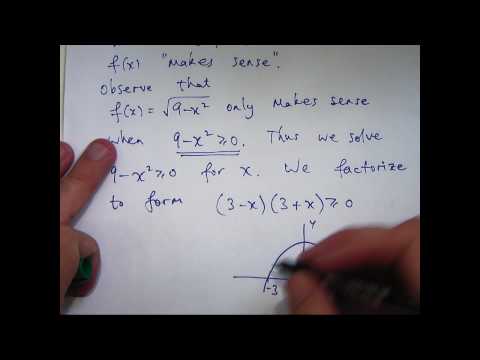 f(x) "makes sense".
Observe that
f(x) = √9-x² only makes sense
when 9-x² ⩾ 0. Thus we solve
9-x² ⩾ 0 for x. We factorize
to form (3-x)(3+x) ⩾ 0
y
-3